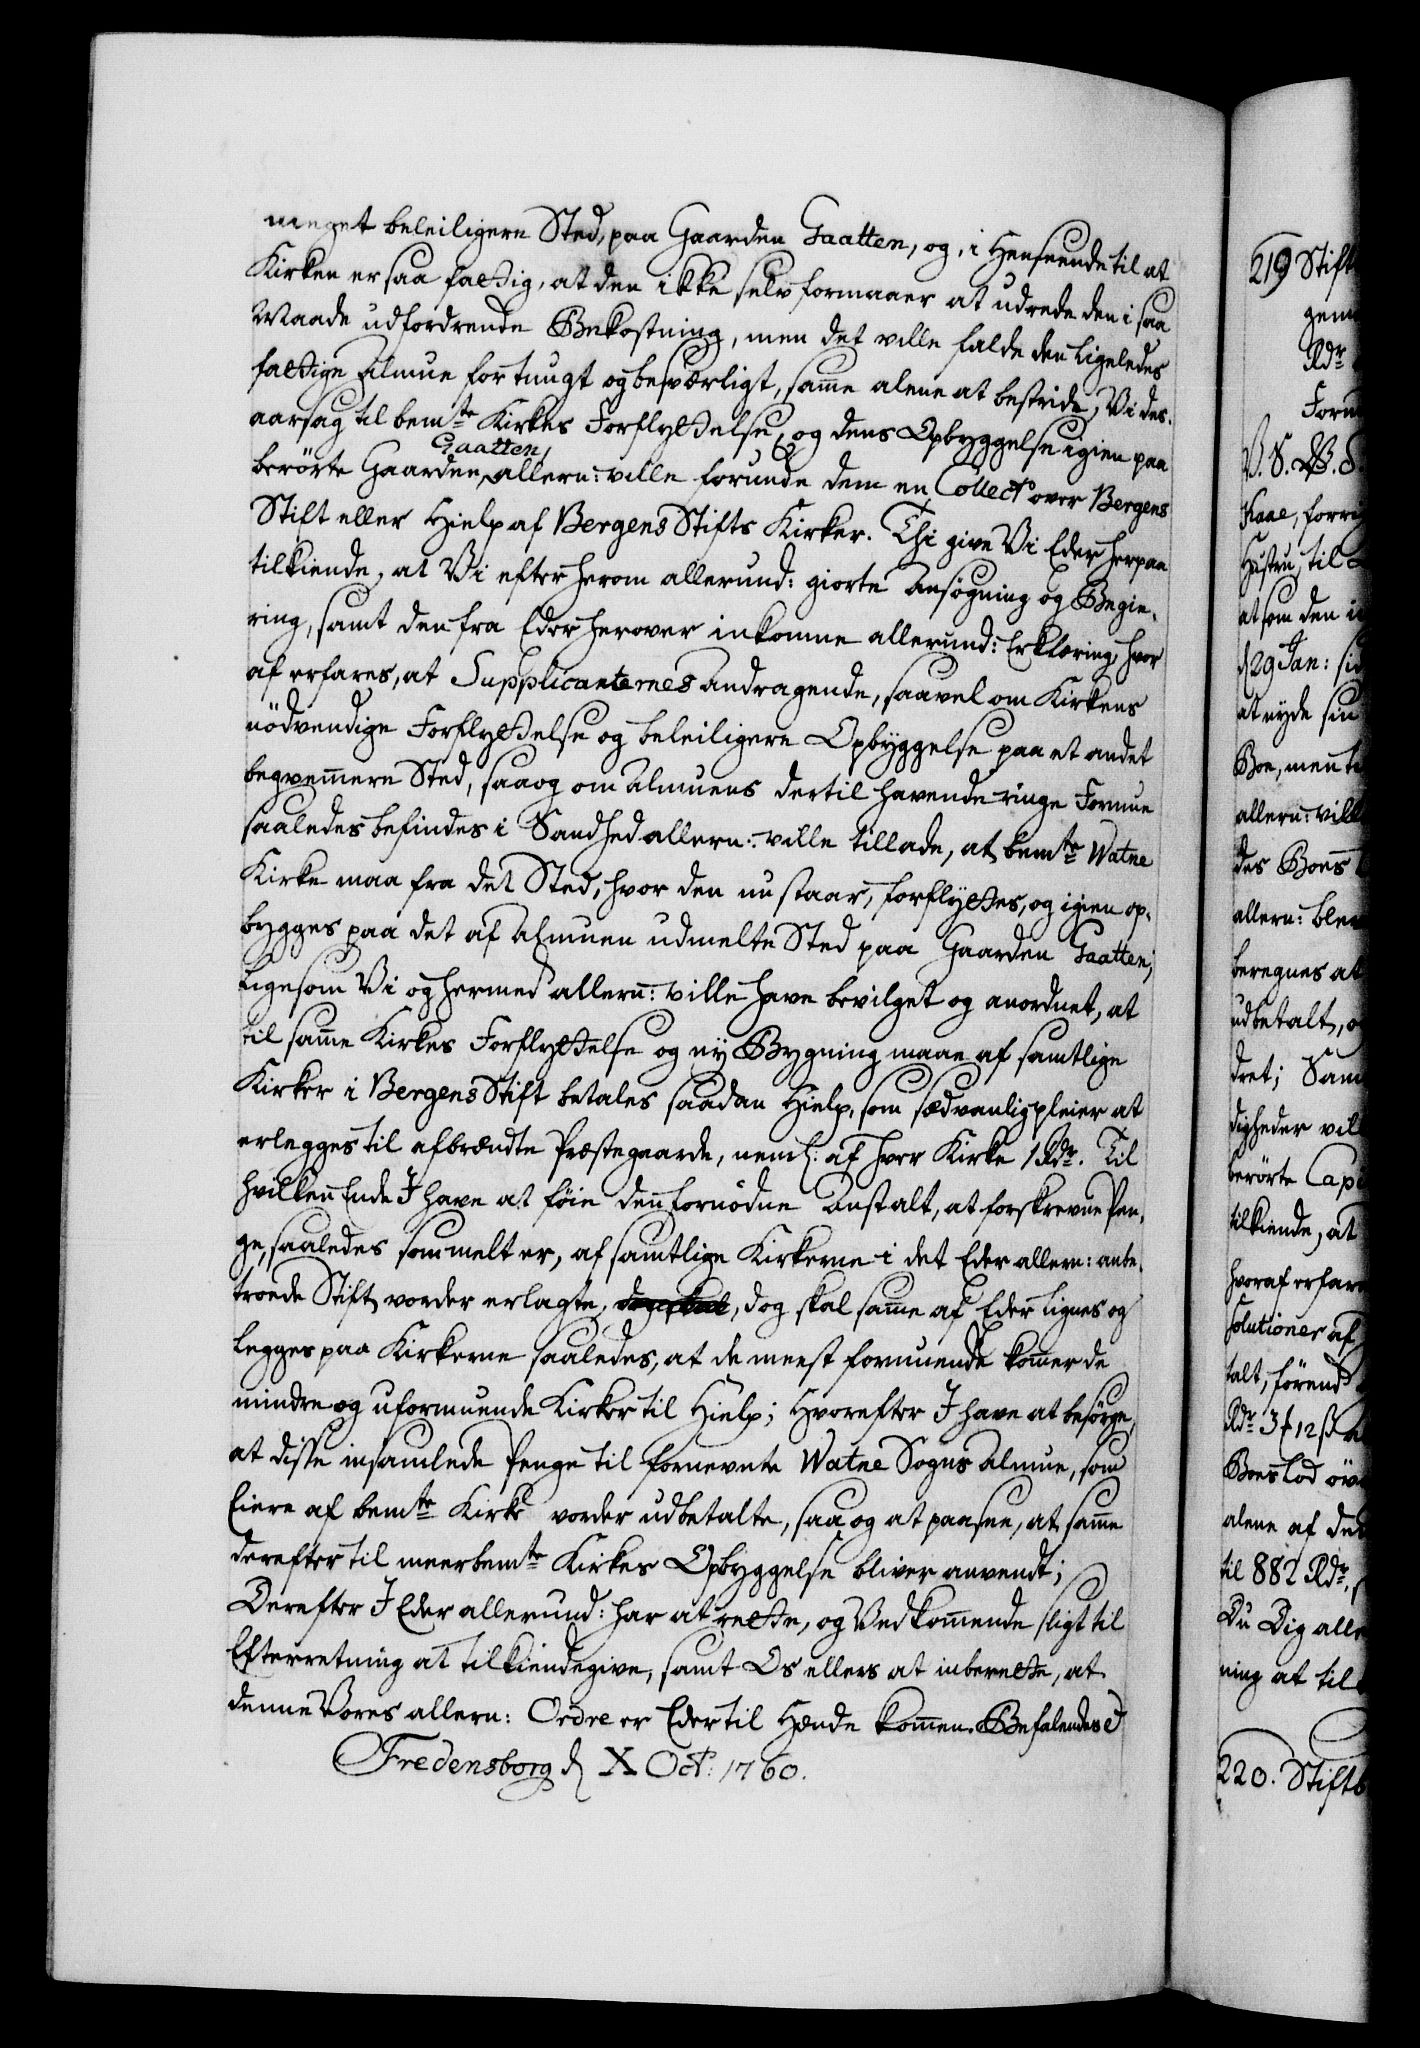 meget beleiligere Sted, paa Gaarden Gaatten, og, i Henseende til at
Kirken er saa fattig, at den ikke selv formaaer at udrede den i saa
Maade udfordrende Bekostning, men det ville falde den ligeledes
fattige Almue for tungt og besværligt, samme alene at bestride, Vi des-
aarsag til bemte Kirkes Forflyttelse, og dens Opbyggelse igien paa
berörte Gaarden Gaatten, allern: ville forunde dem en Collect over Bergens
Stift eller Hielp af Bergens Stifts Kirker. Thi give Vi Eder herpaa
tilkiende, at Vi efter herom allerund: giorte Ansøgning og Begie-
ring, samt den fra Eder herover inkomne allerund: Erklæring, hvor
af erfares, at Supplicanternes Andragende, saavel om Kirkens
nödvendige Forflyttelse og beleiligere Opbyggelse paa et andet
beqvemmere Sted, saa og om Almuens dertil havende ringe Formue
saaledes befindes i Sandhed allern: ville tillade, at bemte Watne
Kirke maa fra det Sted, hvor den nu staar, forflyttes, og igien op-
bygges paa det af Almuen udmelte Sted paa Gaarden Gaatten;
Ligesom Vi og hermed allern: ville have bevilget og anordnet, at
til samme Kirkes Forflyttelse og ny Bygning maae af samtlige
Kirker i Bergens Stift betales saadan Hielp, som sædvanlig pleier at
erlegges til afbrændte Præstegaarde, neml: af hver Kirke 1 Rdr. Til
hvilken Ende I have at føie den fornödne Anstalt, at forskrevne Pen-
ge, saaledes som melt er, af samtlige Kirkerne i det Eder allern: anbe-
troede Stift vorder erlagte, dog skal, dog skal samme af Eder lignes og
legges paa Kirkerne saaledes, at de meest formuende kommer de
mindre og uformuende Kirker til Hielp; Hvorefter I have at besörge,
at disse insamlede Penge til fornevnte Watne Sogns Almue, som
Eiere af bemte Kirke vorder udbetalte, saa og at paasee, at samme
derefter til meerbemte Kirkes Opbyggelse bliver anvendt;
Derefter I Eder allerund: har at rette, og Vedkommende sligt til
Efterretning at tilkiendegive, samt Os ellers at inberette, at
denne Vores allern: Ordre er Eder til Hænde kommen. Befalendes
Fredensborg d X Oct: 1760.
219 Stift
gem
Rdr
Form
V. S. W. S.
Kaae, forri
Hustru, til
at som den i
d 29 Jan: si
at nyde sin
Boe, men t
allern: vill
des Boes
allern: blev
beregnes at
udbetalt, o
dret; Sam
digheder vil
berörte Cap
tilkiende, at
hvoraf erfar
solutioner af
talt, förend
Rdr 3 f 12 ß
Boes lod öv
alene af de
til 882 Rdr,
Du Dig alle
ning at til
220. Stiftb